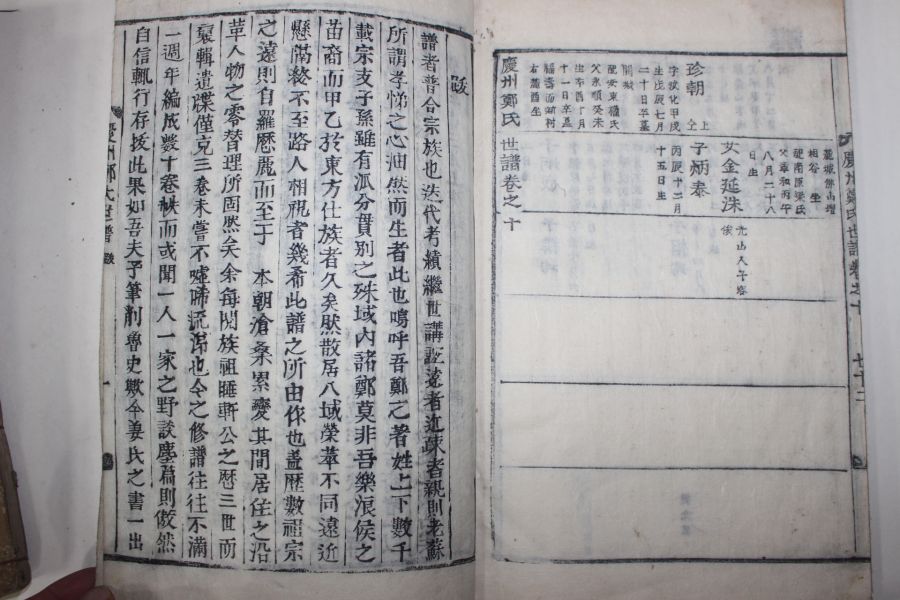 慶州鄭氏世譜卷之十 七十二
相谷 坐
配南原梁氏
父章和丙午
八月二十八
日生
珍朝
字致化甲戌
生戊辰七月
二十日卒墓
開城
配安東權氏
父永順癸未
十一日卒墓
右麓酉坐
子炳泰
丙辰十二月
十五日生
女金延洙
慶州鄭氏 世譜卷之十
跋
譜者普合宗族也迭代考績繼世講誼遠者近疎者親則老蘇
所謂孝悌之心油然而生者此也嗚呼吾鄭之著姓上下數千
載宗支子孫雖有派分貫別之殊域內諸鄭莫非吾樂浪侯之
苗裔而甲乙於東方仕族者久矣然散居八域榮萃不同遠近
懸隔終不至路人相視者幾希此譜之所由作也盖歷數祖宗
之遠則自羅歷麗而至于 本朝滄桑累變其間居住之沿
革人物之零替理所固然矣余每閱族祖睡軒公之歷三世而
裒輯遺牒僅克三卷未嘗不噓唏流涕也今之修譜往往不滿
一週年編成數十卷帙而或聞一人一家之野談塵篇則儼然
自信輒行存拔此果如吾夫子筆削魯史歟今姜氏之書一出
慶州鄭氏世譜 跋 一